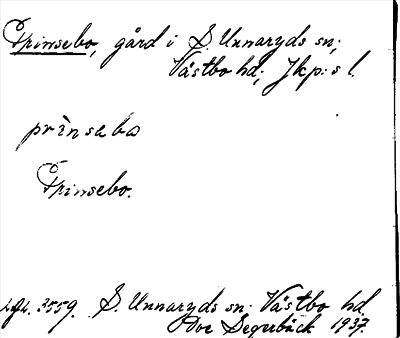 Prinsebo, gård i S. Unnaryds sn;
Västbo hd; Jkp:s l.
prìnsebo
Prinsebo.
3559. S. Unnaryds sn. Västbo hd.
Segerbäck 1937.